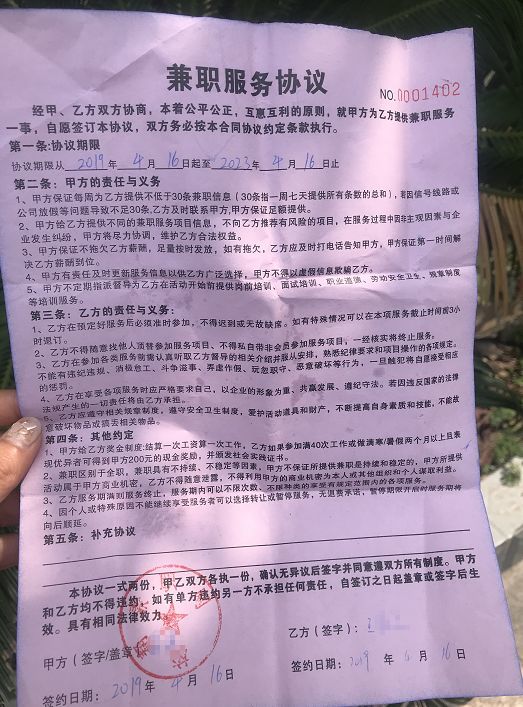 兼职服务协议
NO.0001402
经甲、乙方双方协商，本着公平公正，互惠互利的原则，就甲方为乙方提供兼职服务
一事，自愿签订本协议，双方务必按本合同协议约定条款执行。
第一条:协议期限
协议期限从 2019 年 4 月 16 日起至 2023 年 4 月 16 日止
第二条：甲方的责任与义务
1、甲方保证每周为乙方提供不低于30条兼职信息（30条指一周七天提供所有条数的总和），若因信号线路或
公司放假等问题导致不足30条,乙方及时联系甲方,甲方保证足额提供。
2、甲方给乙方提供不同的兼职服务项目信息，不向乙方推荐有风险的项目，在服务过程中因非主观因素与企
业发生纠纷，甲方将尽力协调，维护乙方合法权益。
3、甲方保证不拖欠乙方薪酬，足量按时发放，如有拖欠，乙方应及时打电话告知甲方，甲方保证第一时间解
决乙方薪酬到位。
4、甲方有责任及时更新服务信息以供乙方广泛选择，甲方不得以虚假信息欺骗乙方。
5、甲方不定期指派督导为乙方在活动开始前提供岗前培训、面试培训、职业道德、劳动安全卫生、规章制度
等培训服务。
第三条：乙方的责任与义务:
1、乙方在预定好服务后必须准时参加，不得迟到或无故缺席。如有特殊情况可以在本项服务截止时间前3小
时退订。
2、乙方不得随意找他人顶替参加服务项目、不得私自带非会员参加服务项目，一经核实将终止服务。
3、乙方在参加各类服务前需认真听取乙方督导的相关介绍并服从安排，熟悉纪律要求和项目操作的各项规定。
不能有违纪违规、消极怠工、斗争滋事、弄虚作假、玩忽职守、恶意破坏等行为，一旦触犯将自愿接受相应
的惩罚。
4、乙方在享受各项服务时应严格要求自己，以企业的形象为重、共赢发展、遵纪守法。若因违反国家的法律
法规产生的一切责任将由乙方承担。
5、乙方应遵守相关规章制度，遵守安全卫生制度，爱护活动道具和财产，不断提高自身素质和技能，不能故
意破坏物品或搞丢相关物品。
第四条：其他约定
1、甲方给乙方奖金制度:结算一次工资算一次工作，乙方如果参加满40次工作或做满寒/暑假两个月以上且表
现优异者可得到甲方200元的现金奖励，并颁发社会实践证书。
2、兼职区别于全职，兼职具有不持续、不稳定等因素，甲方不保证所提供兼职是持续和稳定的，甲方所提供
活动属于甲方商业机密，乙方不得随意泄露，不得利用甲方的商业机密为本人或其他组织和个人谋取利益。
3、乙方服务期满则服务终止，服务期内可以不限次数、不限种类的享受有规定范围内的各项服务。
4、因个人或特殊原因不能继续享受服务者可以选择转让或暂停服务，无退费承诺，暂停期限开启时服务期将
向后顺延。
第五条：补充协议
本协议一式两份，甲乙双方各执一份，确认无异议后签字并同意遵双方所有制度。甲方
和乙方均不得违约，如有单方违约另一方不承担任何责任，自签订之日起盖章或签字后生
效。具有相同法律效力
甲方（签字/盖章）
乙方（签字）：
签约日期：2019 年 4 月 16 日
签约日期：2019 年 4 月 16 日